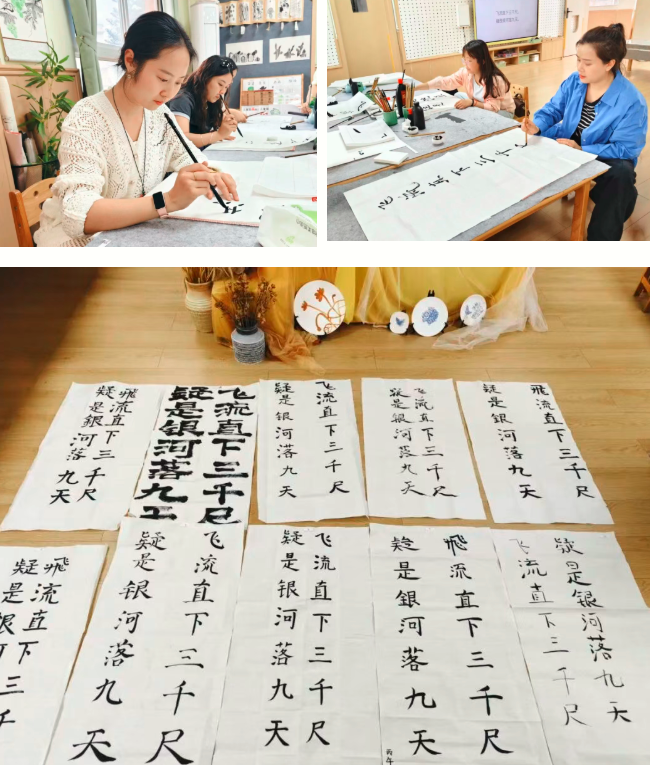 飞流直下三千尺
疑是银河落九天
飛流直下三千尺
疑是银河落九天
飞流直下三千尺
疑是银河落九
飞流直下三千尺
疑是银河落九天
飞流直下三千尺
疑是银河落九天
飛流直下三千尺
疑是银河落九天
飛流直下三千
疑是
飞流直下三千尺
疑是银河落九天
飞流直下三千尺
疑是银河落九天
飛流直下三千尺
疑是銀河落九天
丙午
飞流直下三千尺
疑是银河落九天